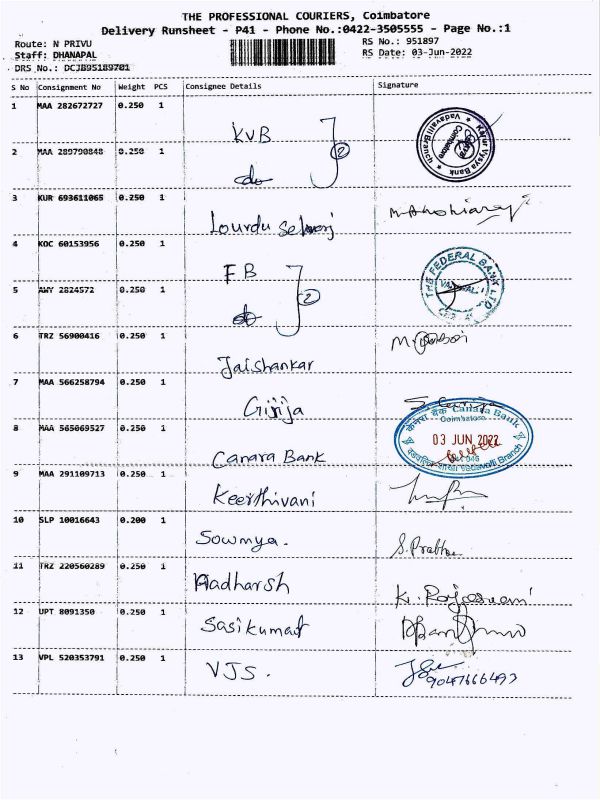 THE PROFESSIONAL COURIERS, Coimbatore
Delivery Runsheet - P41 - Phone No.:0422-3505555 - Page No.:1
Route: N PRIVU
RS No.: 951897
Staff: DHANAPAL
RS Date: 03-Jun-2022
DRS No.: DCJB95189701
S No Consignment No Weight PCS Consignee Details Signature
1 MAA 282672727 0.250 1
KVB 2
Karur Vysya Bank Vadavalli Branch Coimbatore
2 MAA 289790848 0.250 1
do
3 KUR 693611065 0.250 1
Lourdu Selvaraj
4 KOC 60153956 0.250 1
FB 2
THE FEDERAL BANK LTD
5 AWY 2824572 0.250 1
do
6 TRZ 56900416 0.250 1
Jaishankar
7 MAA 566258794 0.250 1
Girija
8 MAA 565069527 0.250 1
Canara Bank
केनरा बैंक Canara Bank
Coimbatore
03 JUN 2022
Vadavalli Branch
9 MAA 291109713 0.250 1
Keerthivani
10 SLP 10016643 0.200 1
Sowmya.
S. Prabhu
11 TRZ 220560289 0.250 1
Aadharsh
12 UPT 8091350 0.250 1
Sasikumar
13 VPL 520353791 0.250 1
VJS.
9047666493